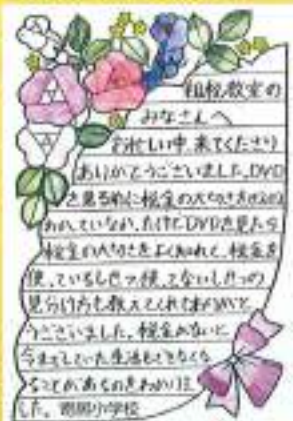 租税教室の
みなさんへ
お忙しい中、来てくださり
ありがとうございました。DVD
を見る前に税金の大切さをあまり
わかっていなか、たけど、DVDを見たら
税金の大切さをよく知れて、税金を
使、ているしせつ、使、てないしせつの
見分け方も教えてくれてありがと
うございました。税金がないと
今までしていた生活もできなくな
ることがあるのをわかりま
した。 小学校